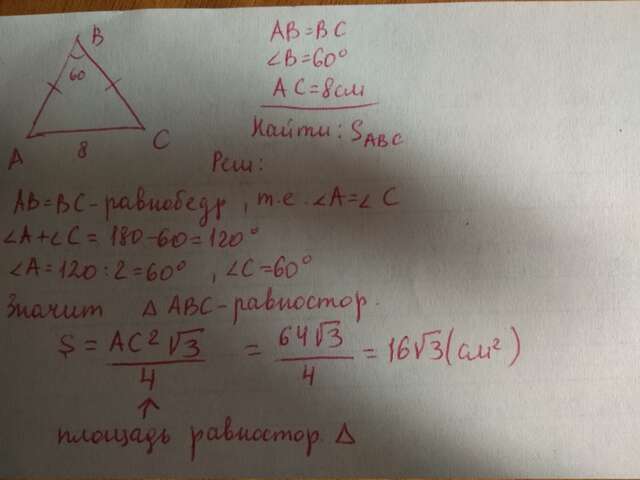 B
60
A
8
C
AB=BC
∠B=60°
AC=8см
Найти: S_ABC
Реш:
AB=BC-равнобедр, т.е. ∠A=∠C
∠A+∠C=180-60=120°
∠A=120:2=60°, ∠C=60°
Значит △ABC-равностор.
S = AC²√3/4 = 64√3/4 = 16√3(см²)
↑
площадь равностор. △